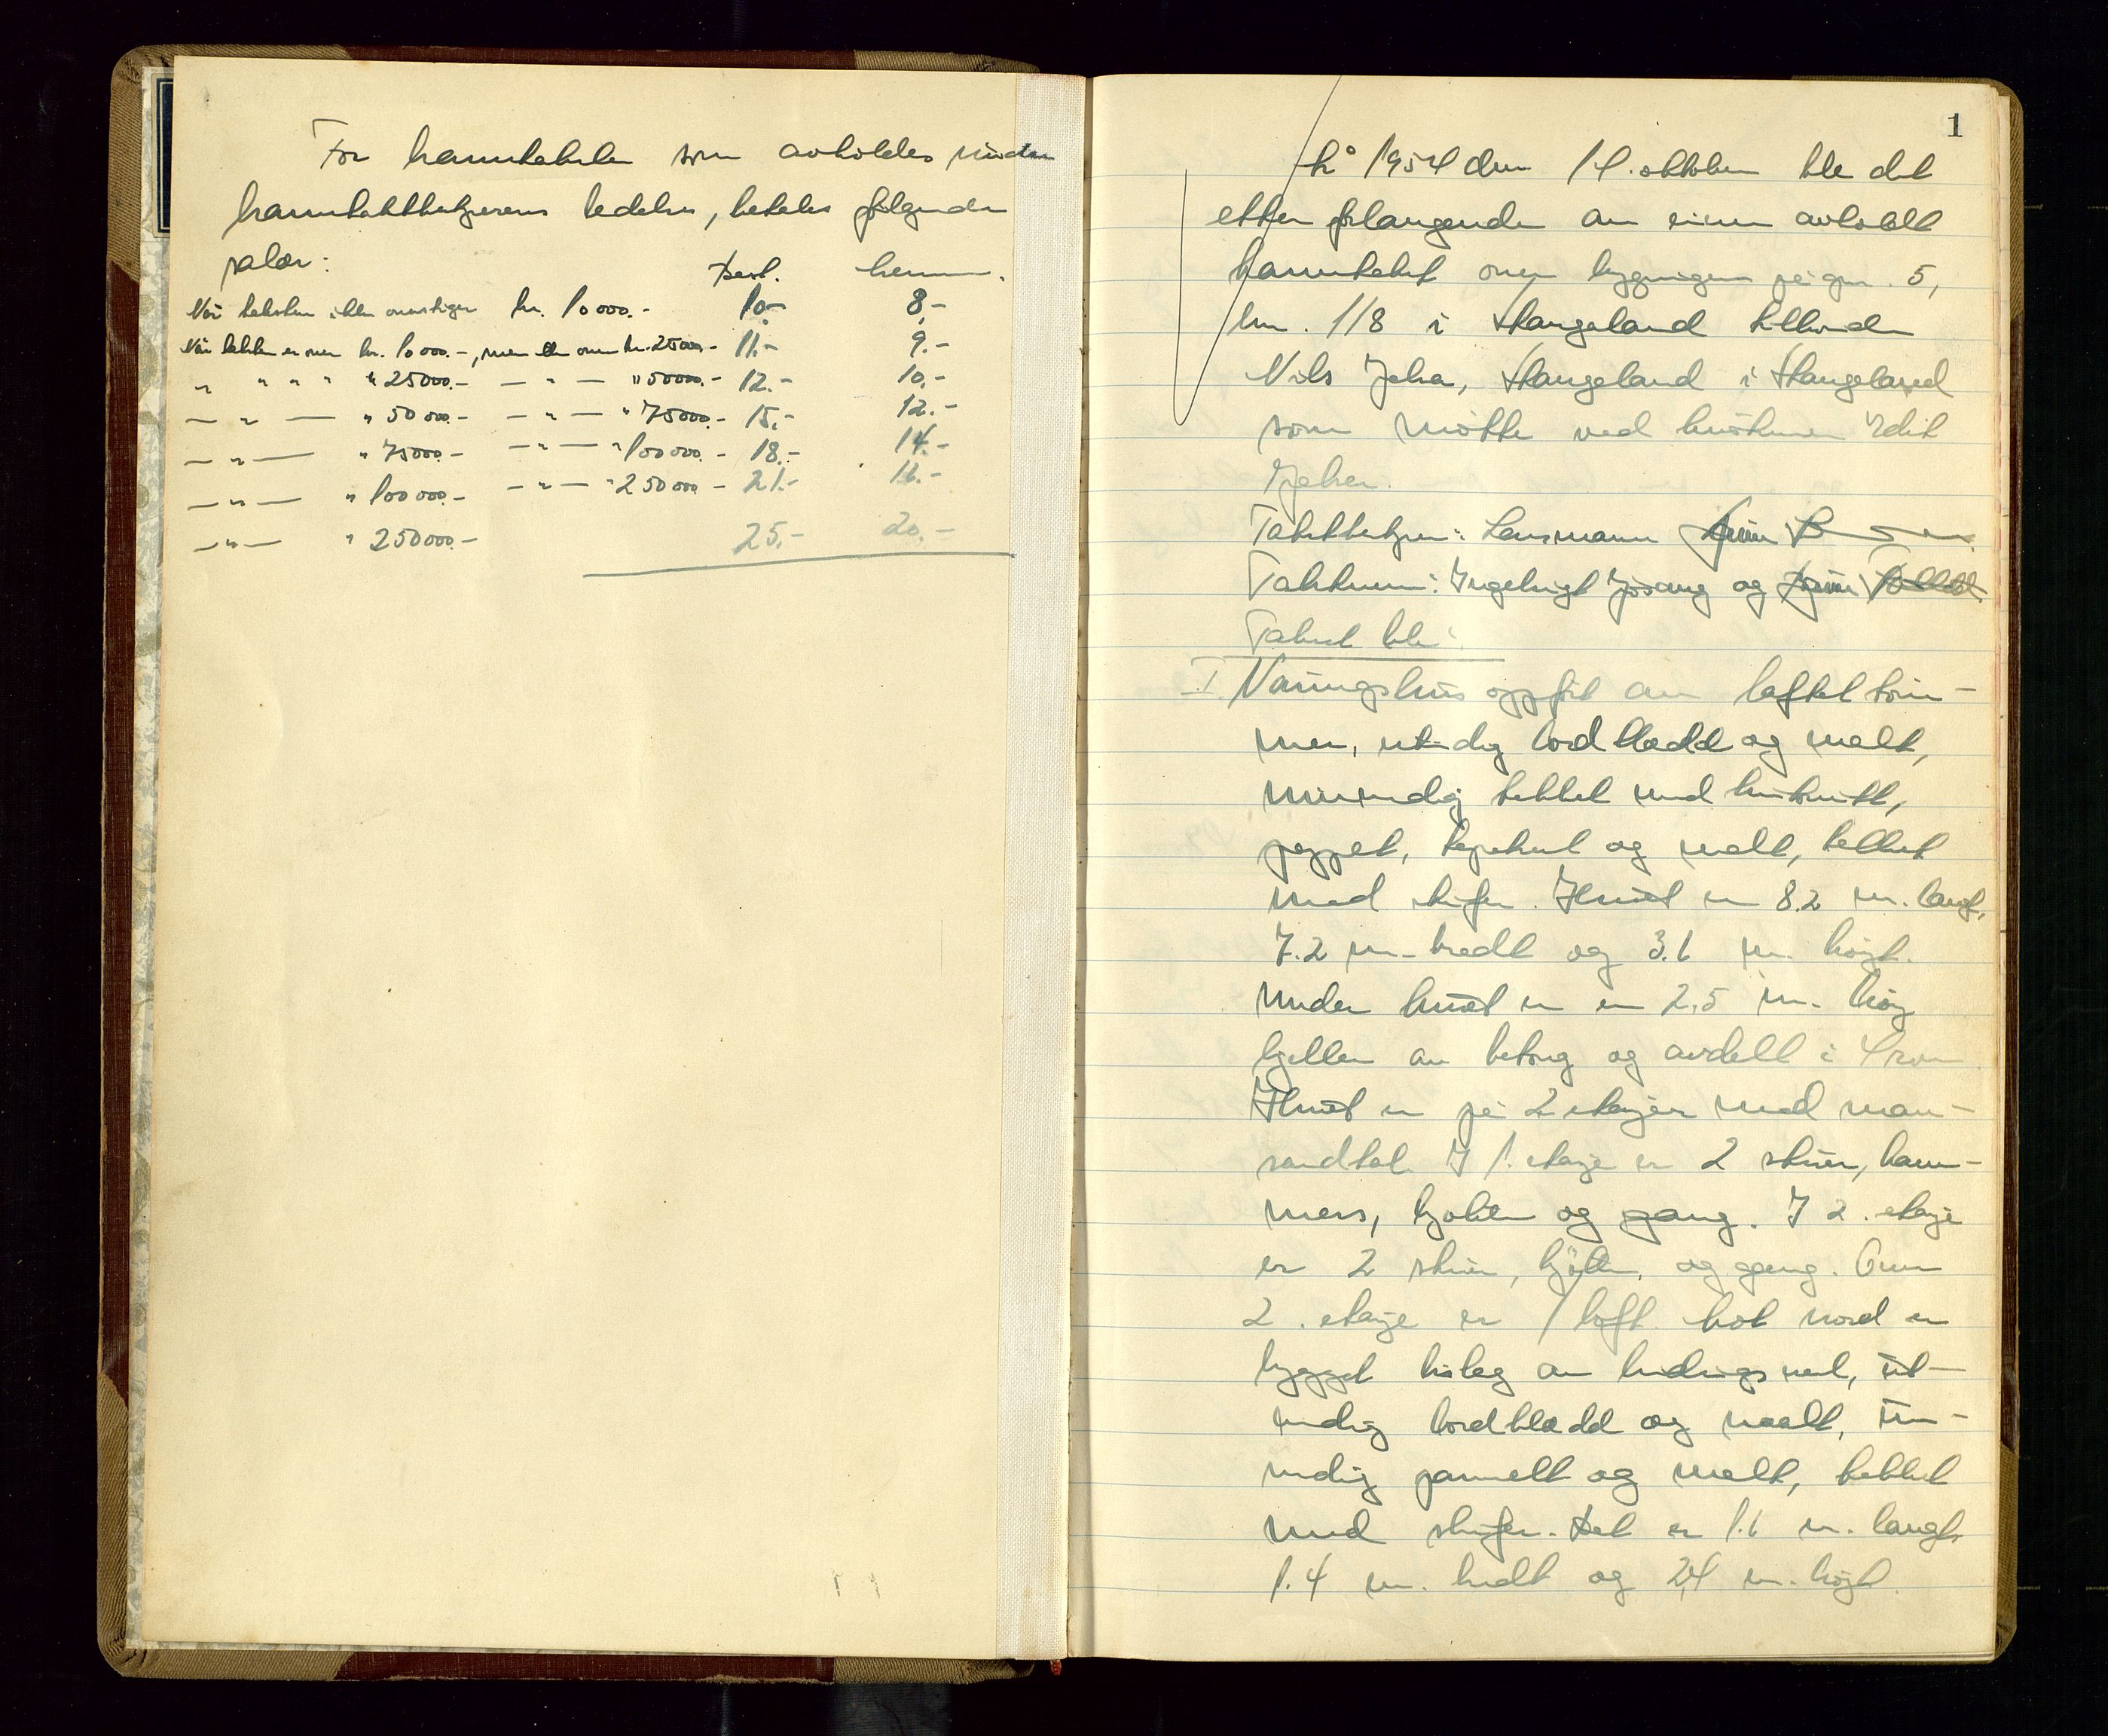 For branntakster som avholdes under
branntakstbestyrerens ledelse, betales følgende
salær:
Best. benevn.
Når taksten ikke overstiger kr. 10 000.- 10.- 8,-
Når taksten er over kr. 10 000.-, men ikke over kr. 25 000.- 11.- 9.-
" " " " " 25 000.- — " — " 50 000.- 12.- 10.-
— " — " 50 000.- — " — " 75 000.- 15.- 12.-
— " — " 75 000.- — " — " 100 000.- 18.- 14.-
— " — " 100 000.- — " — " 250 000.- 21.- 16.-
— " — " 250 000.- 25.- 20.-
1
År 1954 den 14. oktober ble det
etter forlangende av eieren avholdt
branntakst over bygningen på gnr. 5,
bnr. 118 i Stangeland tilhørende
Nils Stangeland i Stangeland
som møtte ved hustruen Edit
Takstbestyrer: Lensmann
Takstmenn: Ingebrigt Jøsang og
Takst ble:
I Våningshus oppført av laftet tøm-
mer, utvendig bordkledd og malt,
innvendig tekket med huntonitt,
pappet, tapetsert og malt, tekket
med skifer. Huset er 8.2 m. langt,
7.2 m. bredt og 3.1 m. høgt.
Under huset er en 2,5 m. høg
kjeller av betong og avdelt i 4 rom
Huset er på 2 etasjer med man-
sardtak. I 1. etasje er 2 stuer, kam-
mers, kjøkken og gang. I 2. etasje
er 2 stuer, kjøkken, og gang. Over
2. etasje er 1 loft. Mot nord er
bygget bislag av bindingsverk, ut-
vendig bordkledd og malt, inn-
vendig panelt og malt, tekket
med skifer. Det er 1.6 m. langt
1.4 m. bredt og 2,4 m. høgt.